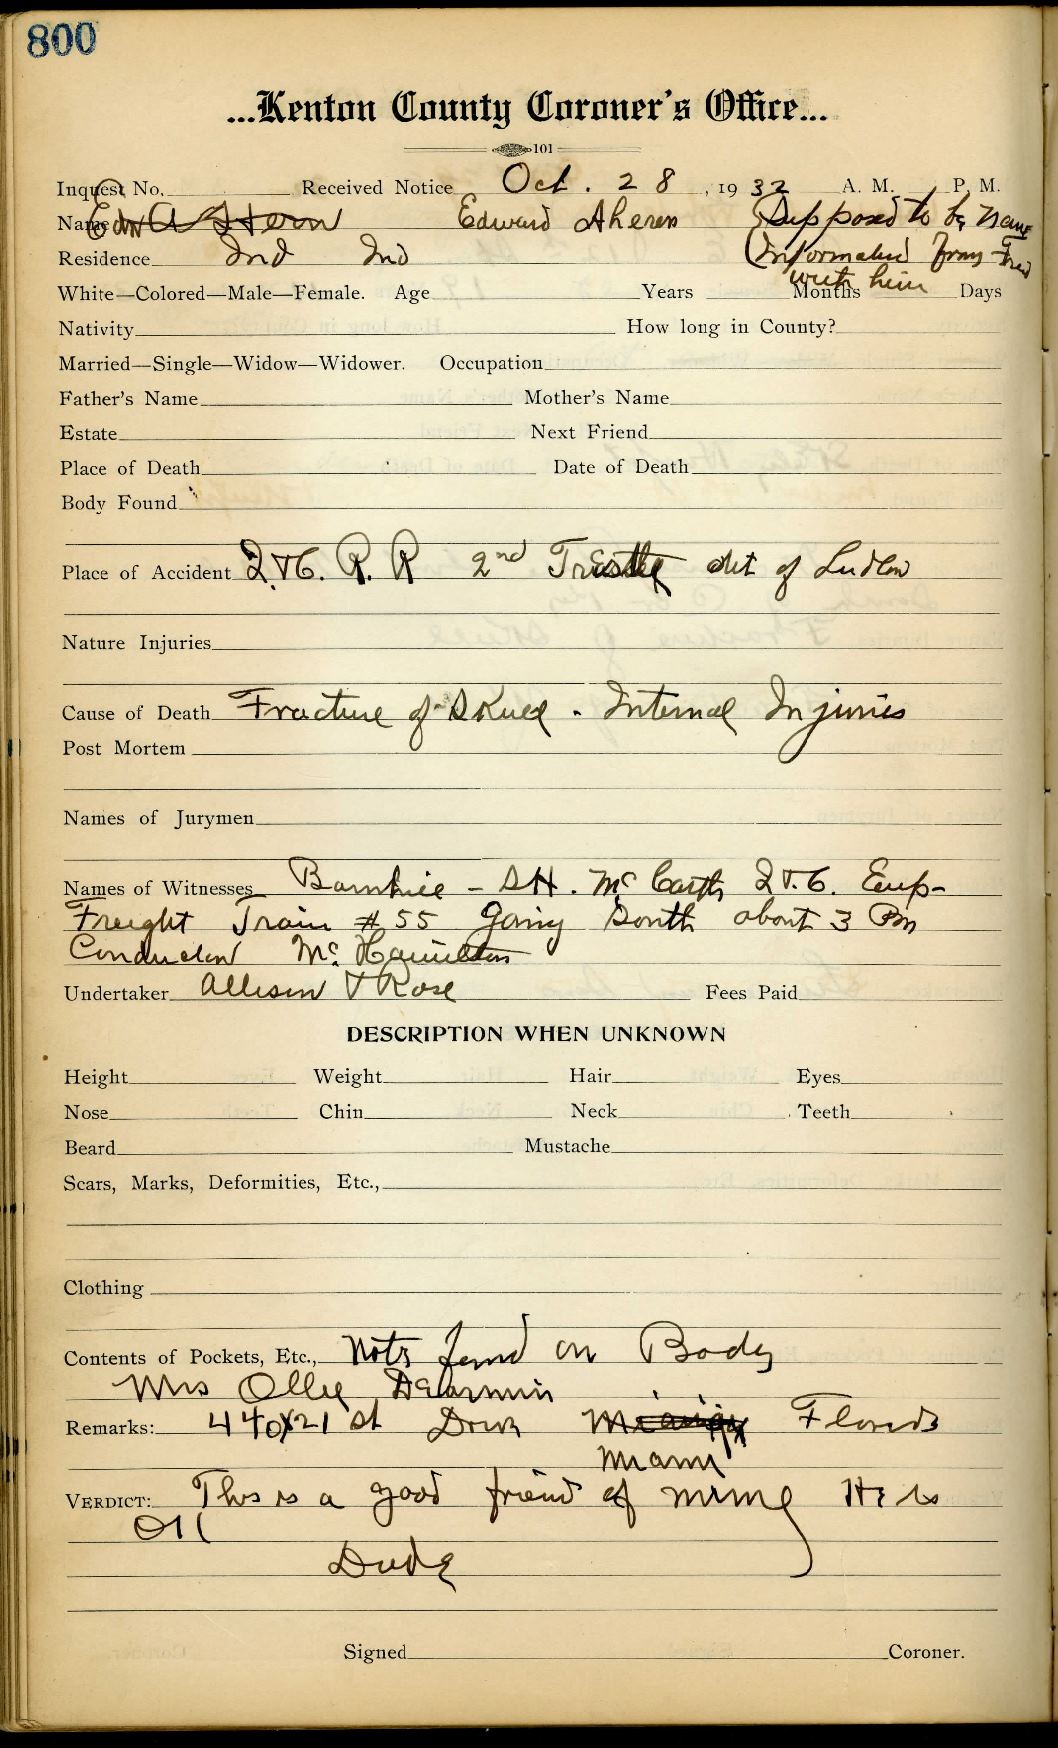 800
...Kenton County Coroner's Office...
101
Inquest No. Received Notice Oct. 28, 1932 A. M. P. M.
Name Edw A Hern Edward Ahern (Supposed to be name
Residence Ind Ind (Informated from Friend
with him
White—Colored—Male—Female. Age Years Months Days
Nativity How long in County?
Married—Single—Widow—Widower. Occupation
Father's Name Mother's Name
Estate Next Friend
Place of Death Date of Death
Body Found
Place of Accident R. R 2nd Trestle out of Ludlow
Nature Injuries
Cause of Death Fracture of Skull - Internal Injuries
Post Mortem
Names of Jurymen
Names of Witnesses
Freight Train #55 going South about 3 Pm
Conductor Mc. Hamilton
Undertaker Allison & Rose Fees Paid
DESCRIPTION WHEN UNKNOWN
Height Weight Hair Eyes
Nose Chin Neck Teeth
Beard Mustache
Scars, Marks, Deformities, Etc.,
Clothing
Contents of Pockets, Etc., Note found on Body
Mrs Ollie DeArmin
Remarks: 440 21 st Florida
Miami
VERDICT: This is a good friend of mine He is
Dude
Signed Coroner.